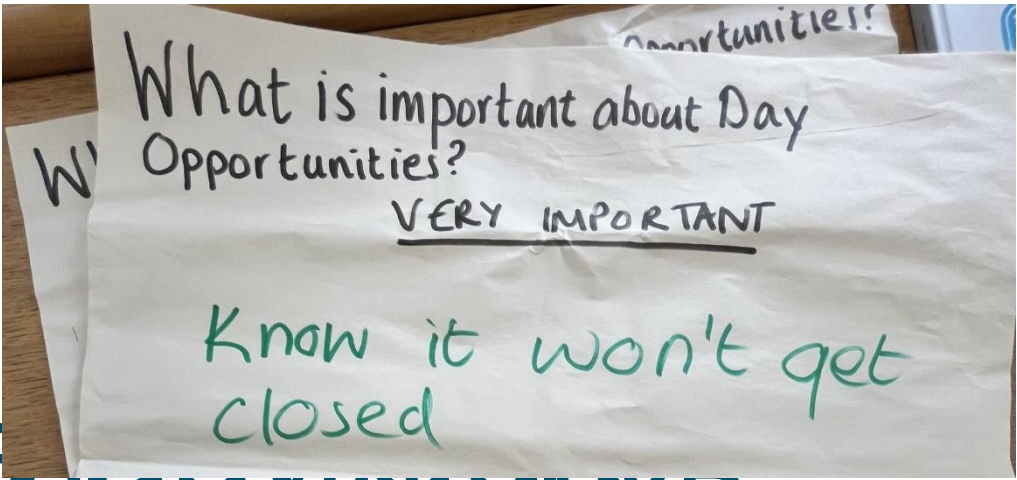 opportunities?
What is important about Day
Opportunities?
VERY IMPORTANT
Know it won't get
closed